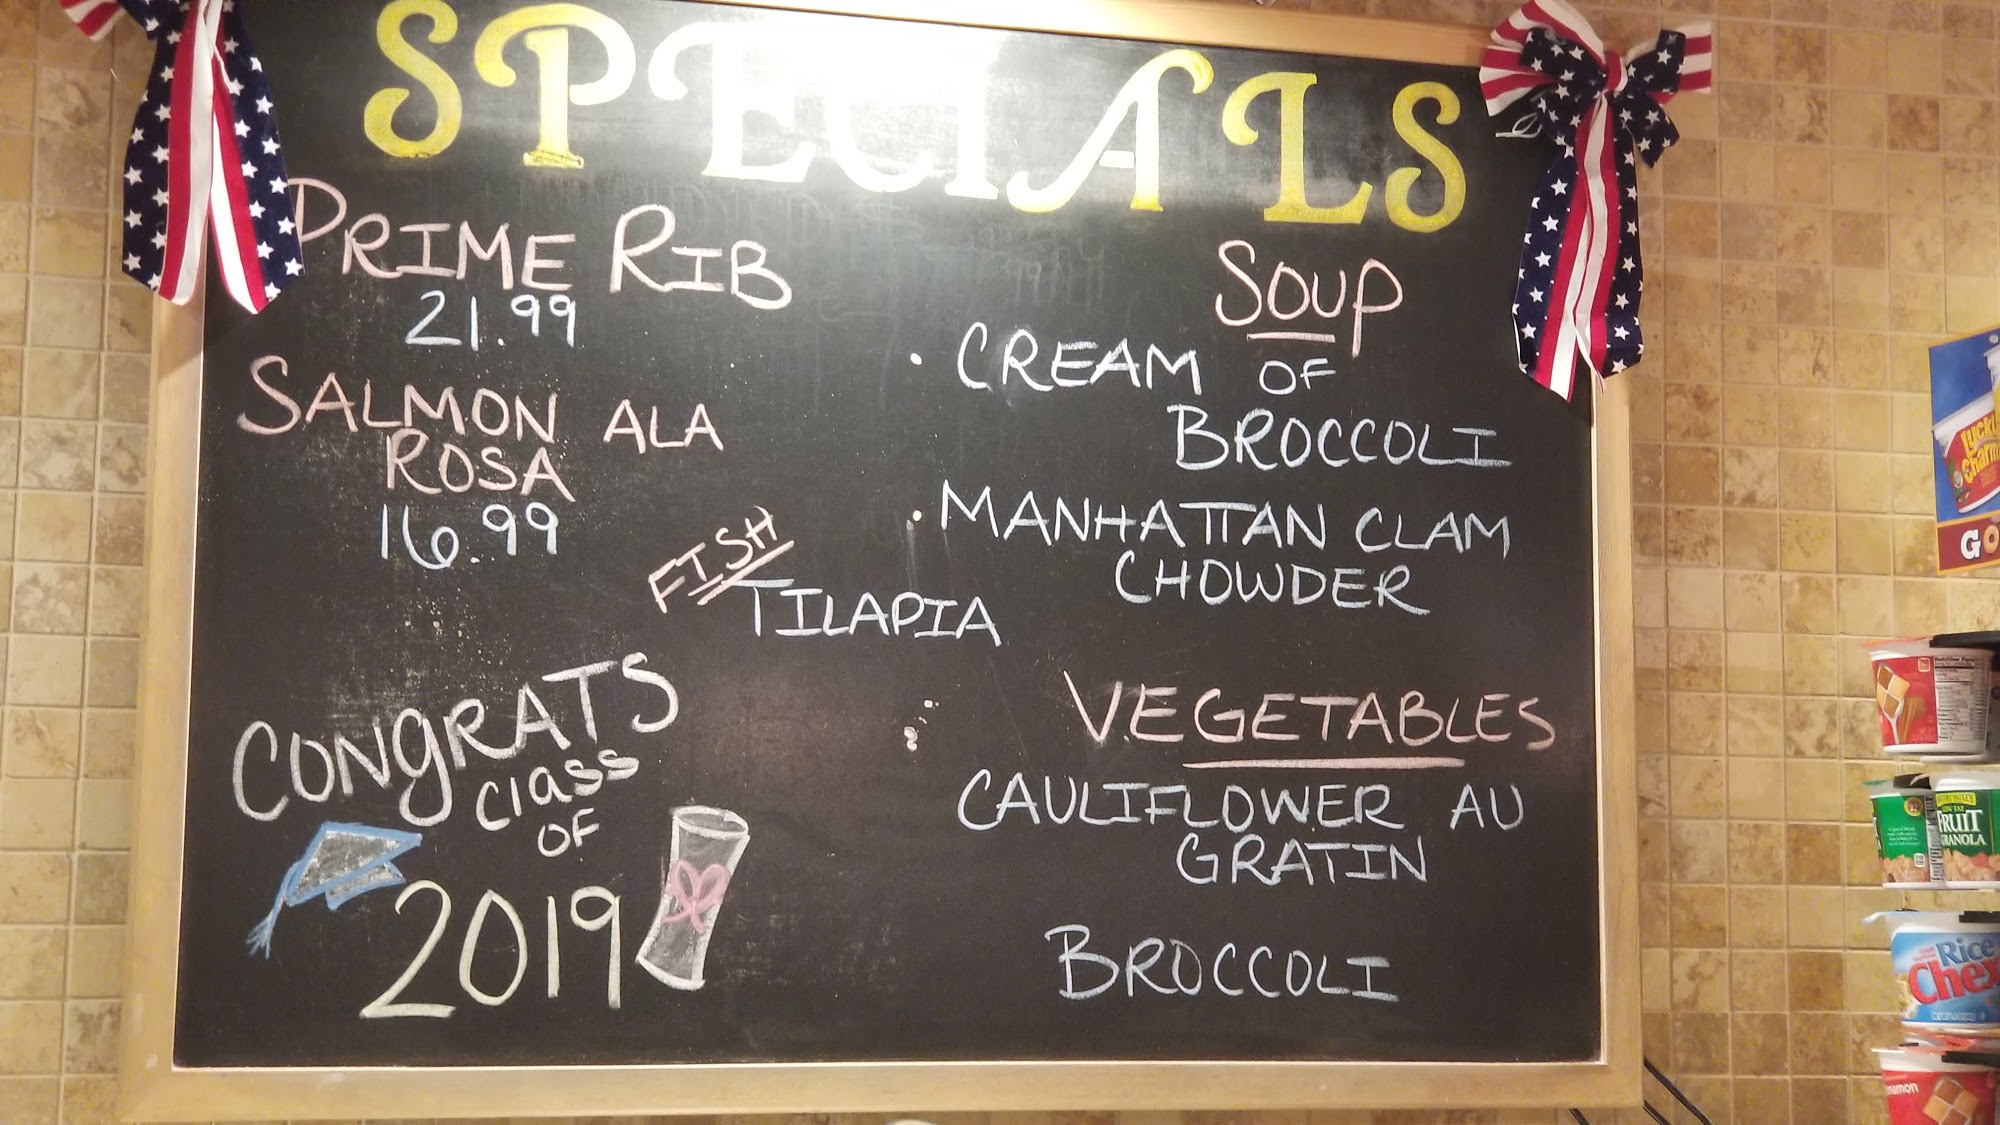 SPECIALS
PRIME RIB
21.99
SALMON ALA
ROSA
16.99
FISH
TILAPIA
CONGRATS
Class
OF
2019
SOUP
• CREAM OF
BROCCOLI
• MANHATTAN CLAM
CHOWDER
VEGETABLES
CAULIFLOWER AU
GRATIN
BROCCOLI
Nutrition Facts
FRUIT
GRANOLA
Rice
Chex